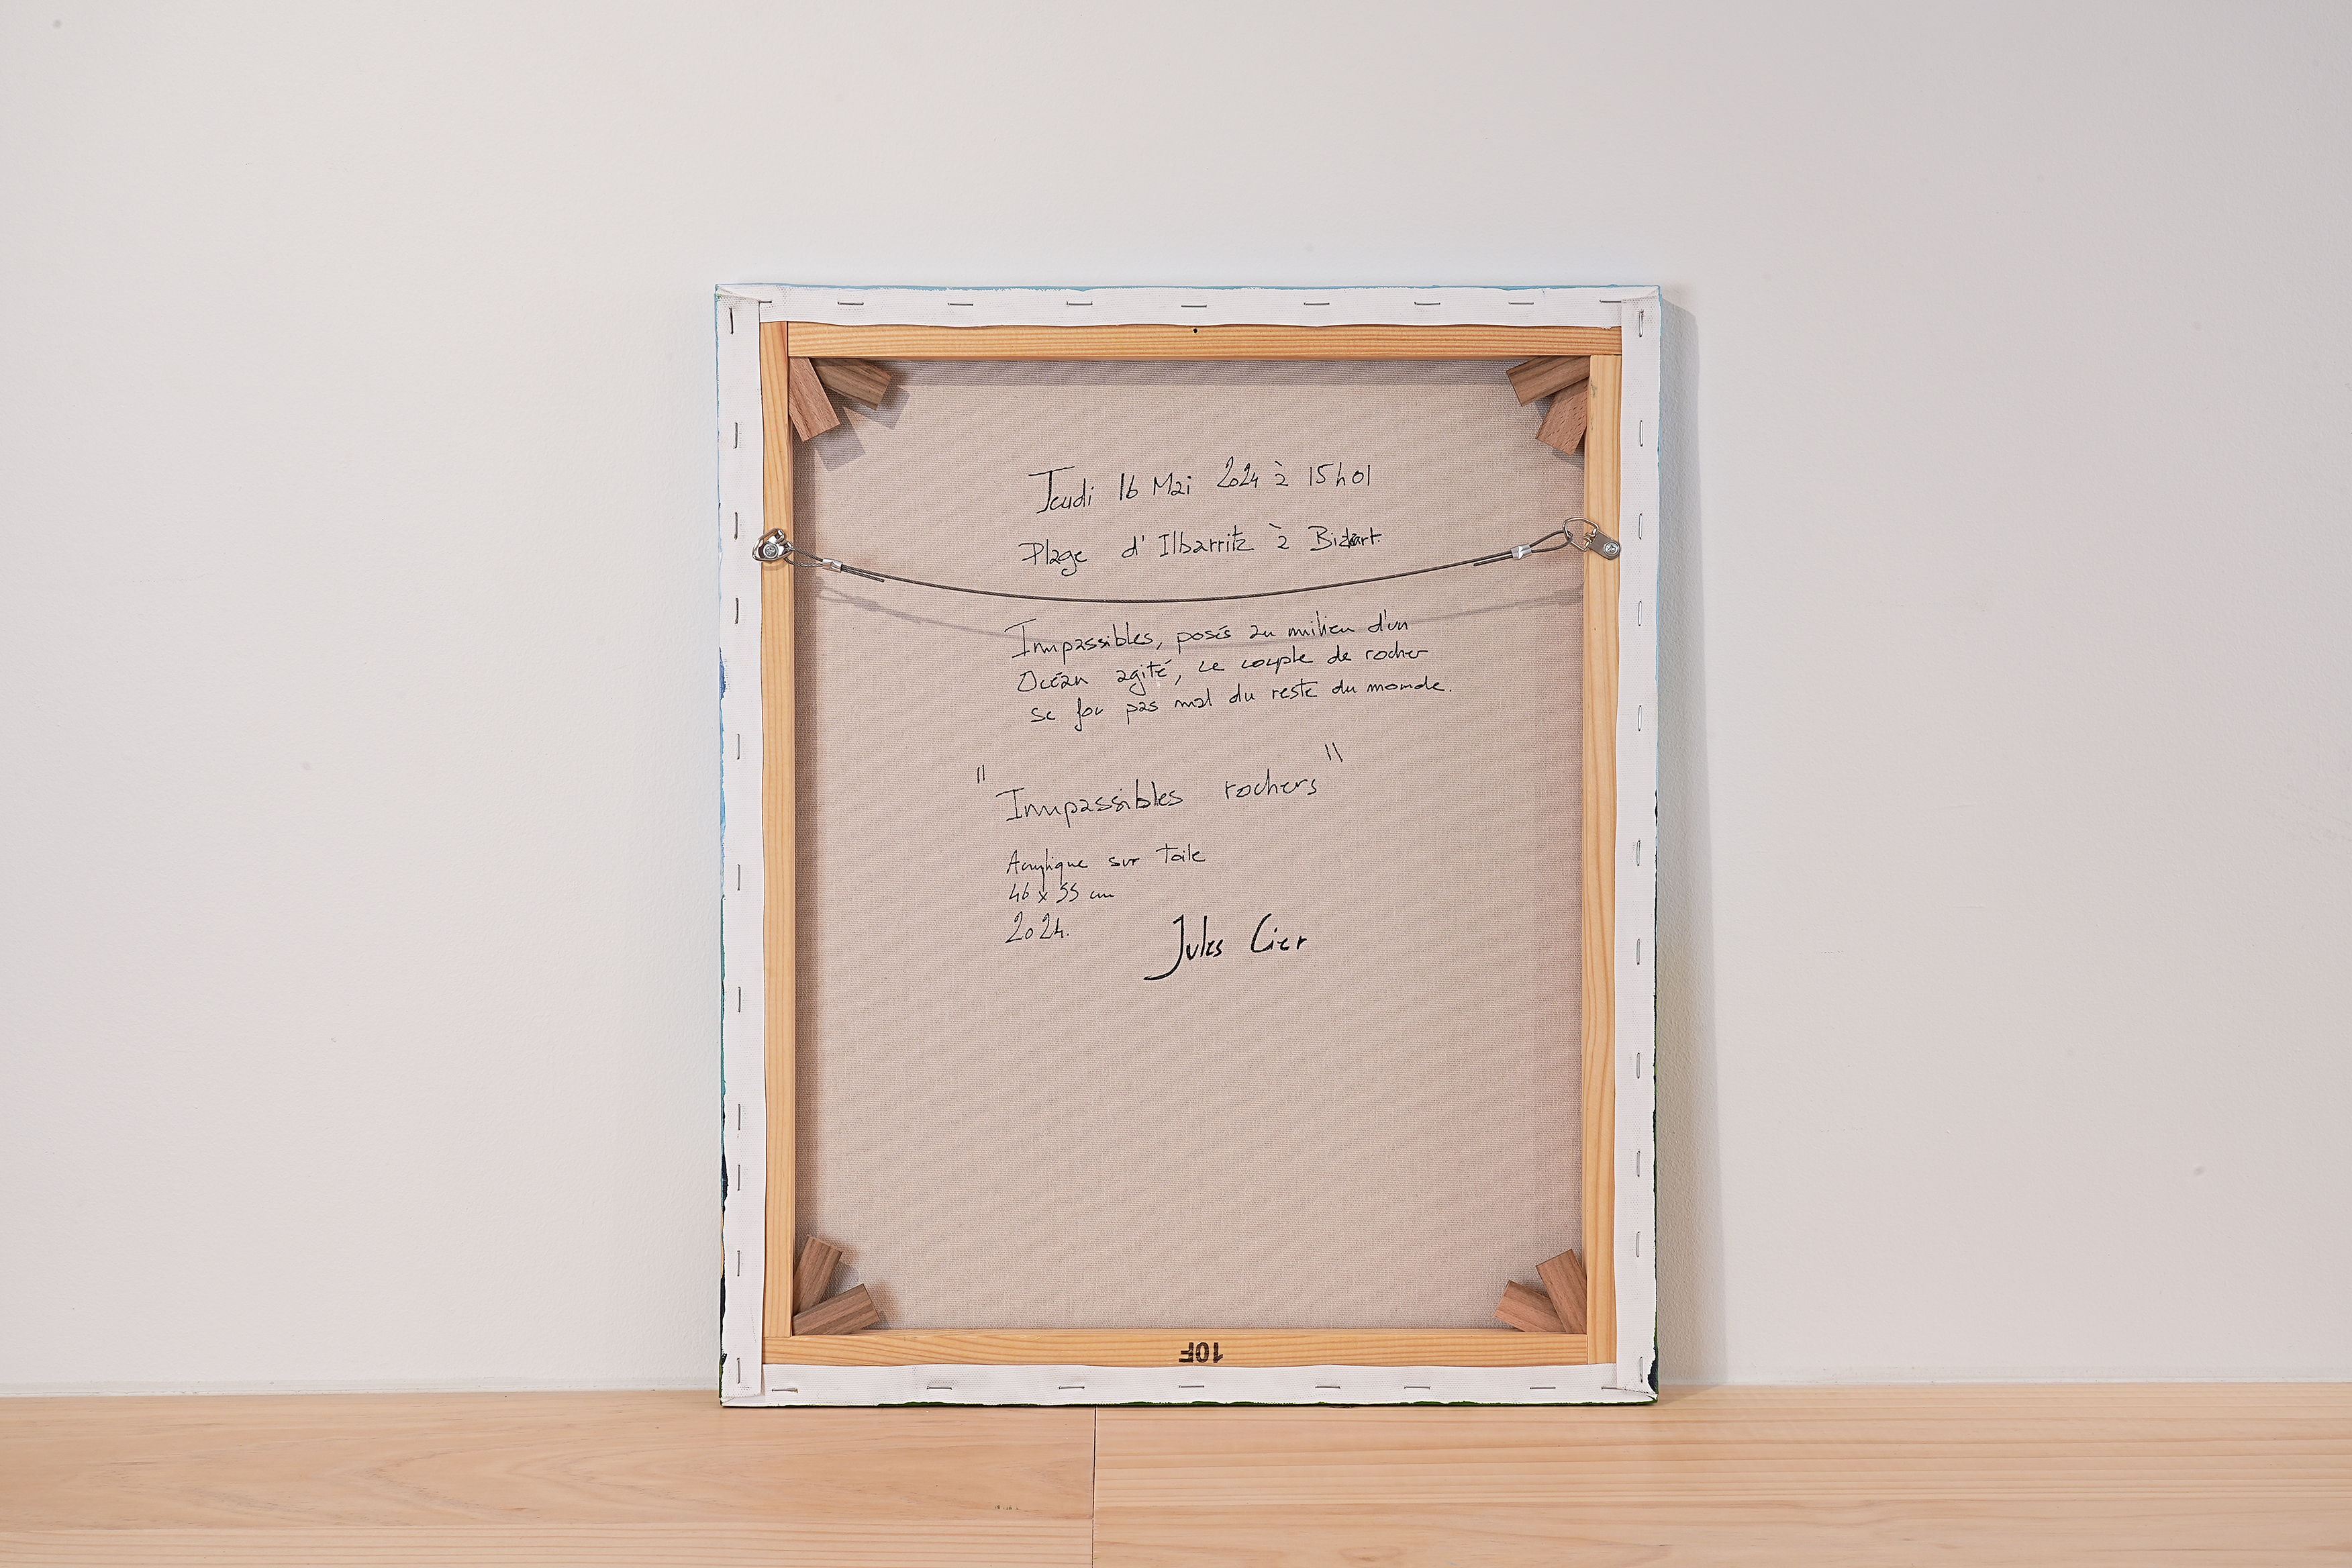 Jeudi 16 Mai 2024 à 15h01
Plage d'Ilbarritz à Bidart.
Impassibles, posés au milieu d'un
Océan agité, ce couple de rocher
se fou pas mal du reste du monde.
"Impassibles rochers"
Acrylique sur Toile
46 x 55 cm
2024.
Jules Cier
10F